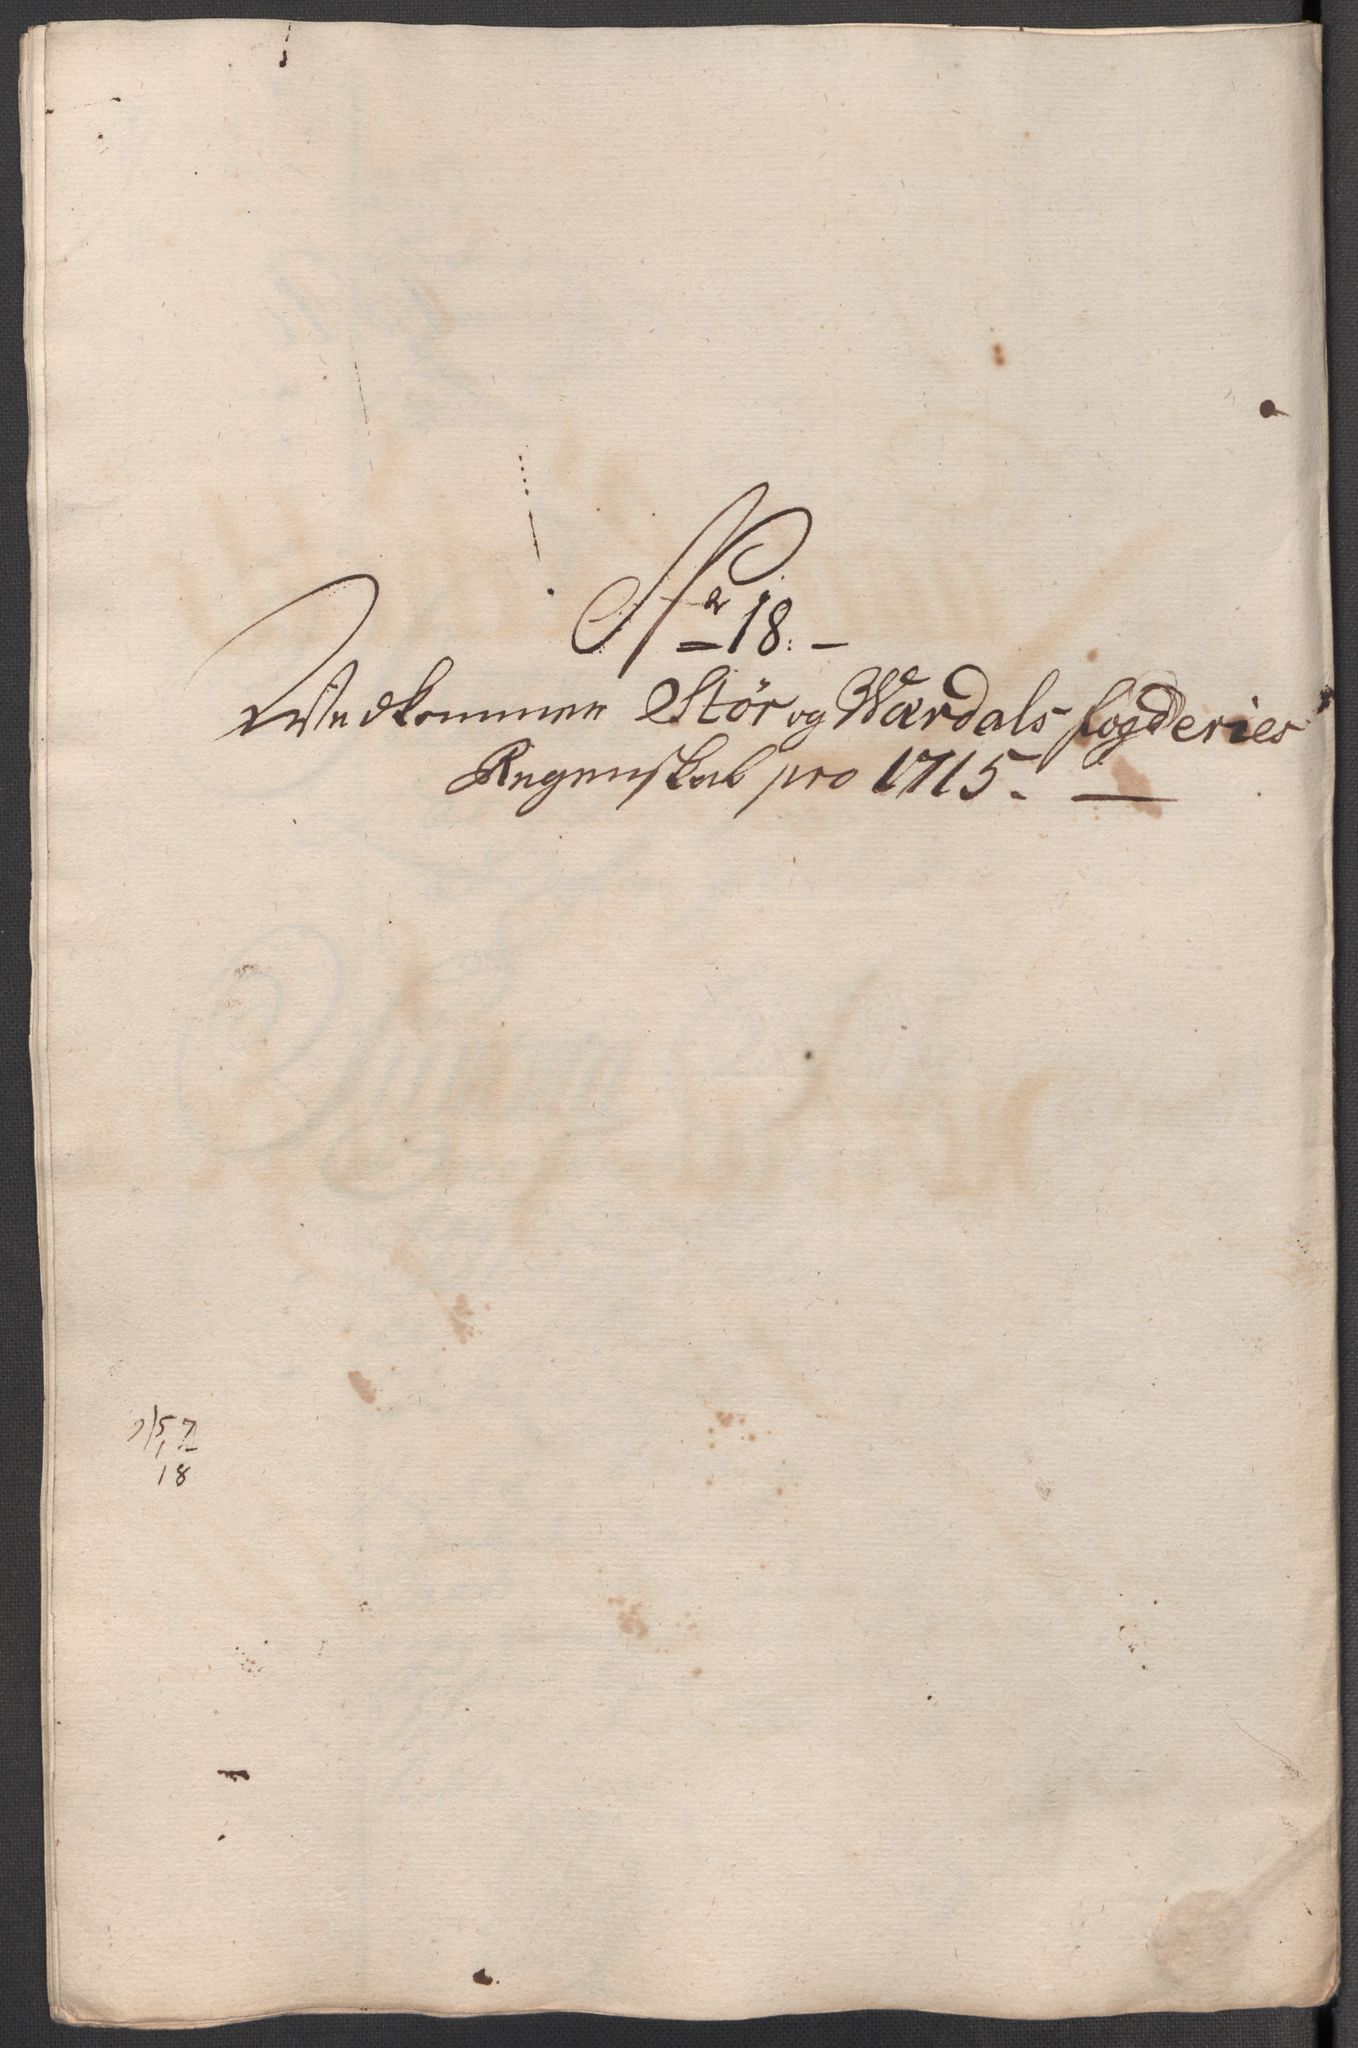 No 18.
Vedkommer Stør og Værdals fogderies
Regenskab pro 1715.
18